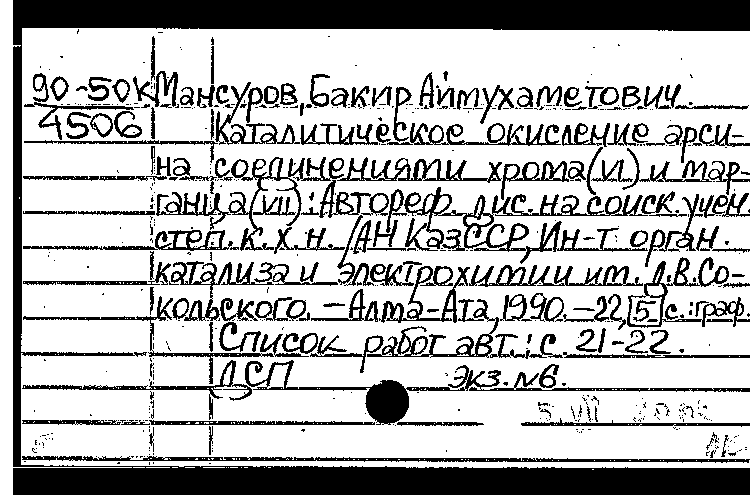 90-50к Мансуров, Бакир Аймухаметович.
4506 Каталитическое окисление арси-
на соединениями хрома (VI) и мар-
ганца (VII) : Автореф. дис. на соиск. учен.
степ. к. х. н. / АН КазССР, Ин-т орган.
катализа и электрохимии им. Д.В.Со-
кольского. – Алма-Ата, 1990. – 22, [5] с. : граф.
Список работ авт.: с. 21-22.
ДСП Экз. №6.